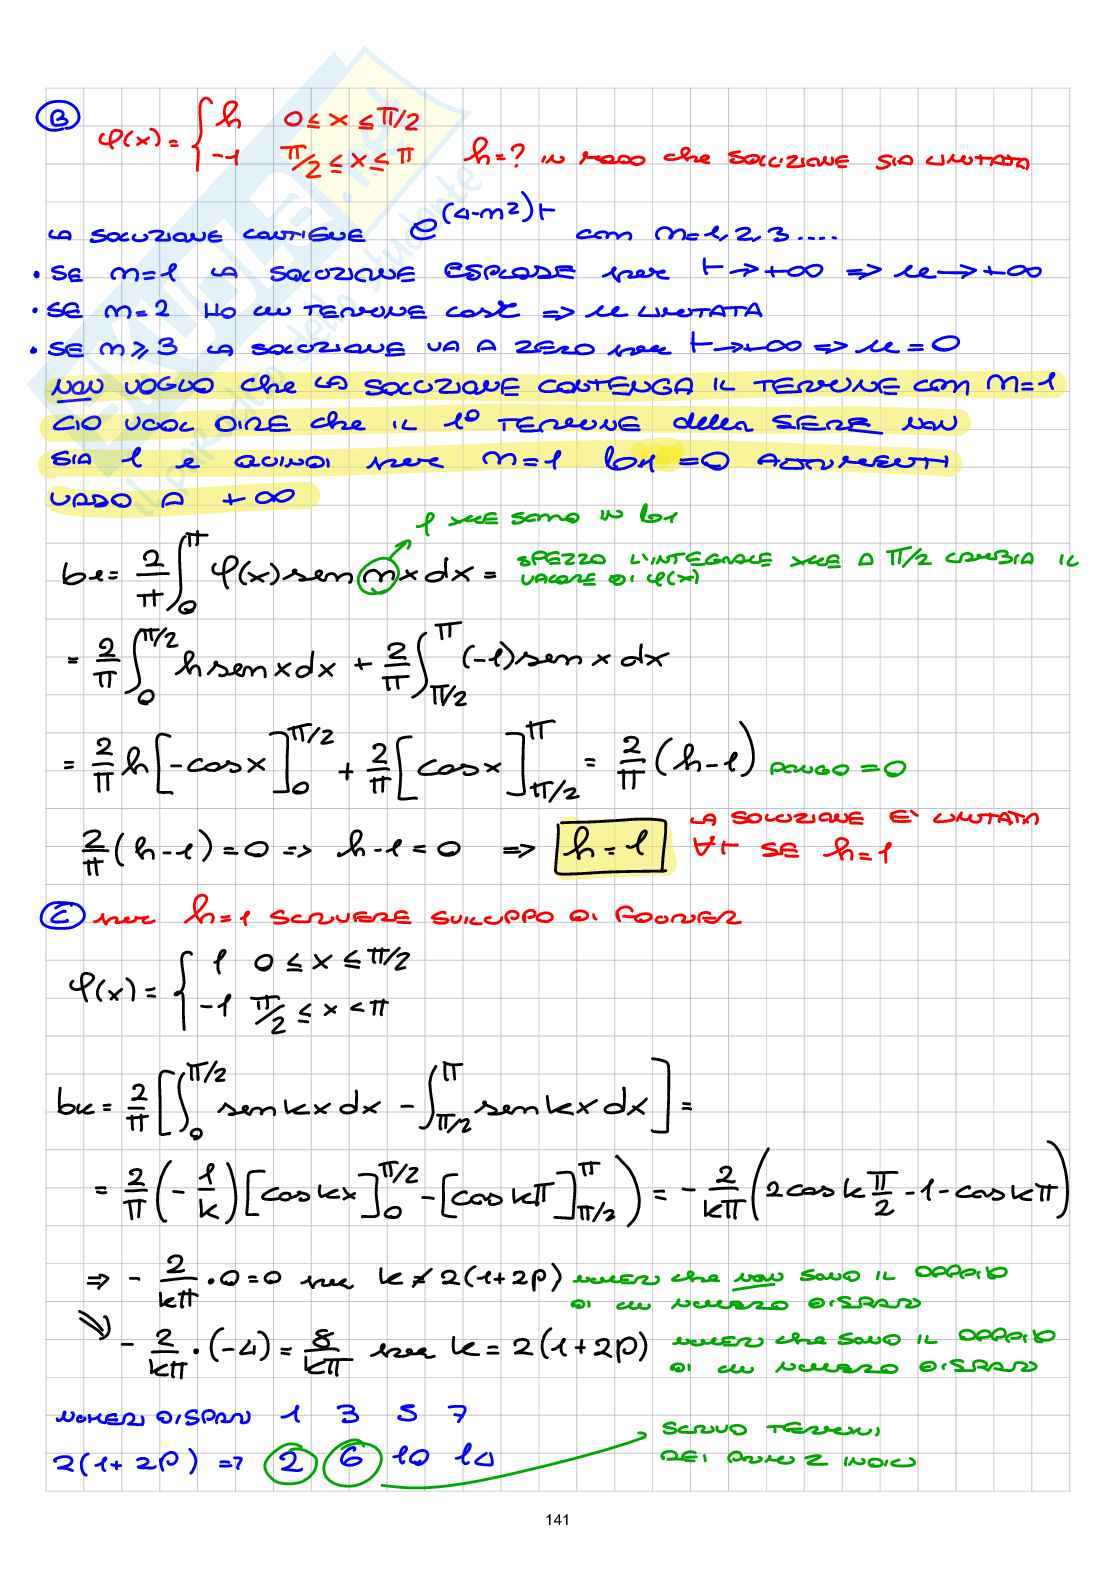 B φ(x) = { h 0 ≤ x ≤ π/2
-1 π/2 ≤ x ≤ π h = ? IN MODO che SOLUZIONE SIA LIMITATA
LA SOLUZIONE CONTIENE e^(4-m²)t con m=1,2,3....
• SE m=1 LA SOLUZIONE ESPLODE per t→+∞ ⇒ u→+∞
• SE m=2 HO UN TERMINE cost ⇒ u LIMITATA
• SE m⩾3 LA SOLUZIONE VA A ZERO per t→+∞ ⇒ u=0
NON VOGLIO che LA SOLUZIONE CONTENGA IL TERMINE con m=1
CIÒ VUOL DIRE che IL 1° TERMINE della SERIE NON
SIA 1 e QUINDI per m=1 b1=0 ALTRIMENTI
VADO A +∞
1 xke SONO IN b1
b1 = 2/π ∫₀^π φ(x) sen m x dx = SPEZZO L'INTEGRALE xke A π/2 CAMBIA IL
VALORE DI φ(x)
= 2/π ∫₀^π/2 h sen x dx + 2/π ∫_π/2^π (-1) sen x dx
= 2/π h [-cos x]₀^π/2 + 2/π [cos x]_π/2^π = 2/π (h-1) PONGO = 0
2/π (h-1) = 0 ⇒ h-1 = 0 ⇒ h = 1 LA SOLUZIONE E' LIMITATA
∀t SE h=1
C per h=1 SCRIVERE SVILUPPO DI FOURIER
φ(x) = { 1 0 ≤ x ≤ π/2
-1 π/2 ≤ x < π
bk = 2/π [∫₀^π/2 sen kx dx - ∫_π/2^π sen kx dx] =
= 2/π (-1/k) [cos kx]₀^π/2 - [cos kπ]_π/2^π ) = - 2/kπ (2 cos k π/2 - 1 - cos kπ)
⇒ - 2/kπ · 0 = 0 per k ≠ 2(1+2p) NUMERI che NON SONO IL DOPPIO
DI UN NUMERO DISPARI
⇒ - 2/kπ · (-4) = 8/kπ per k = 2(1+2p) NUMERI che SONO IL DOPPIO
DI UN NUMERO DISPARI
NUMERI DISPARI 1 3 5 7
2(1+2p) ⇒ 2 6 10 14
SCRIVO TERMINI
DEI PRIMI 2 INDICI
141